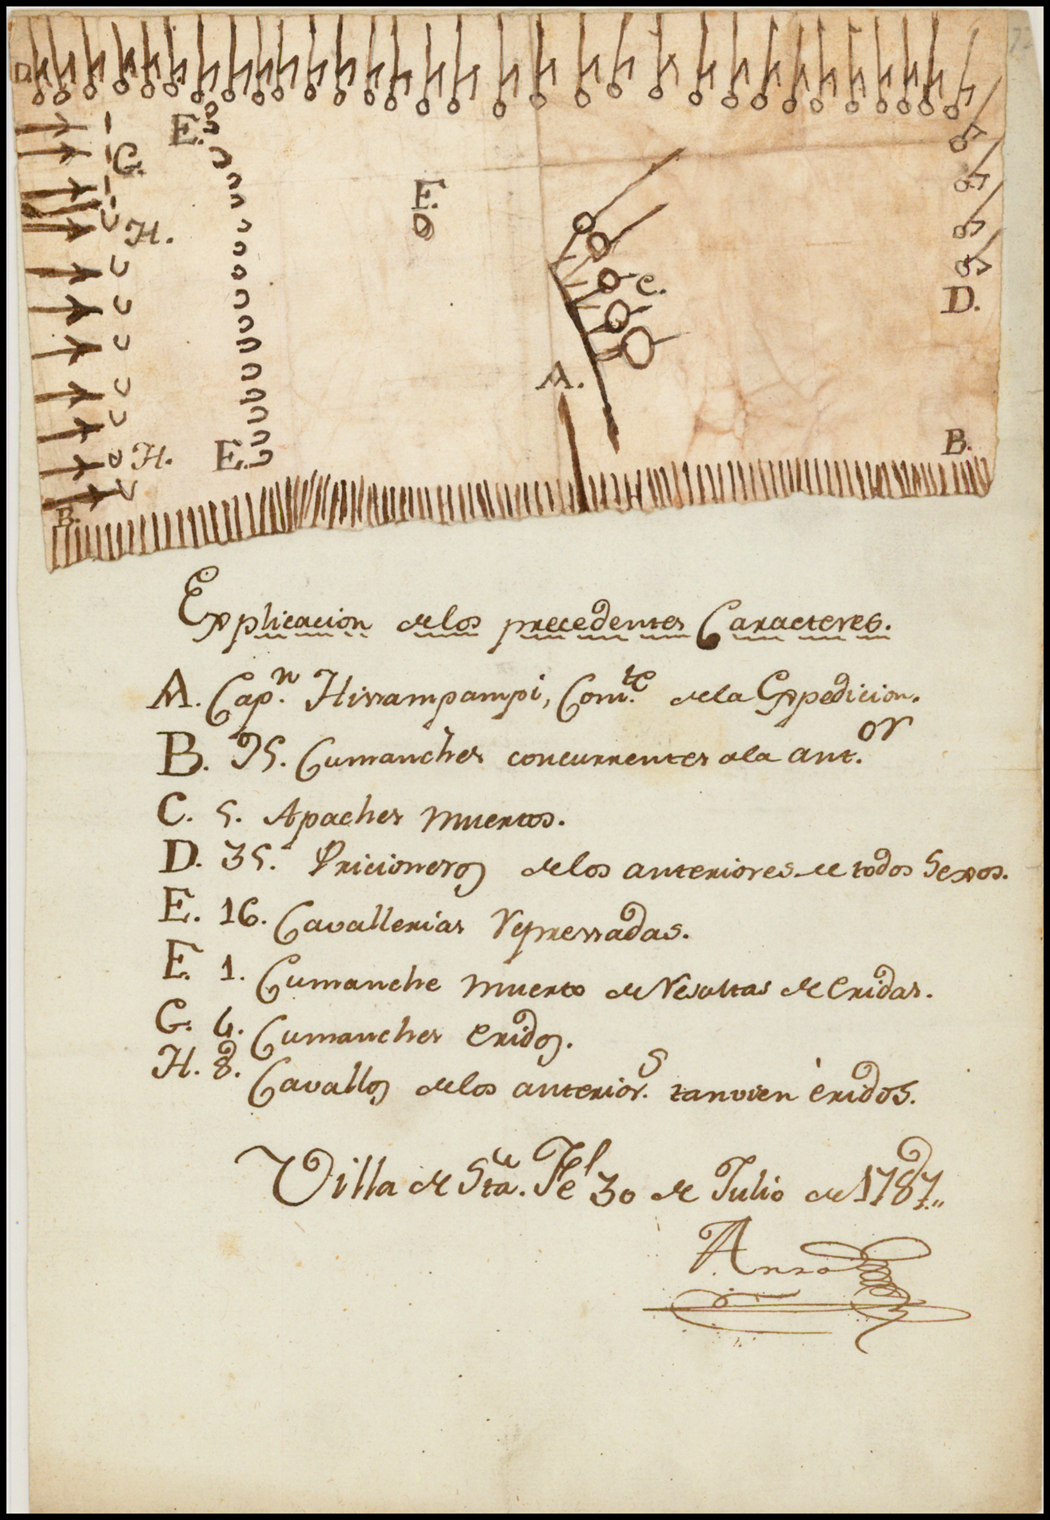 D.
E.
G.
F.
H.
C.
D.
A.
B.
H.
E.
B.
Explicacion delos precedentes Caracteres.
A. Cap.n Hissampampi, Com.te dela Expedicion.
B. 95. Cumanches concurrentes ala ant.or
C. 5. Apaches muertos.
D. 35. Pricioneros delos anteriores de todos Sexos.
E. 16. Cavallerias represadas.
F. 1. Cumanche muerto de resultas de Eridas.
G. 4. Cumanches eridos.
H. 8. Cavallos delos anterior.s tanvien éridos.
Villa de Sta. Fé 30 de Julio de 1787.
Anza